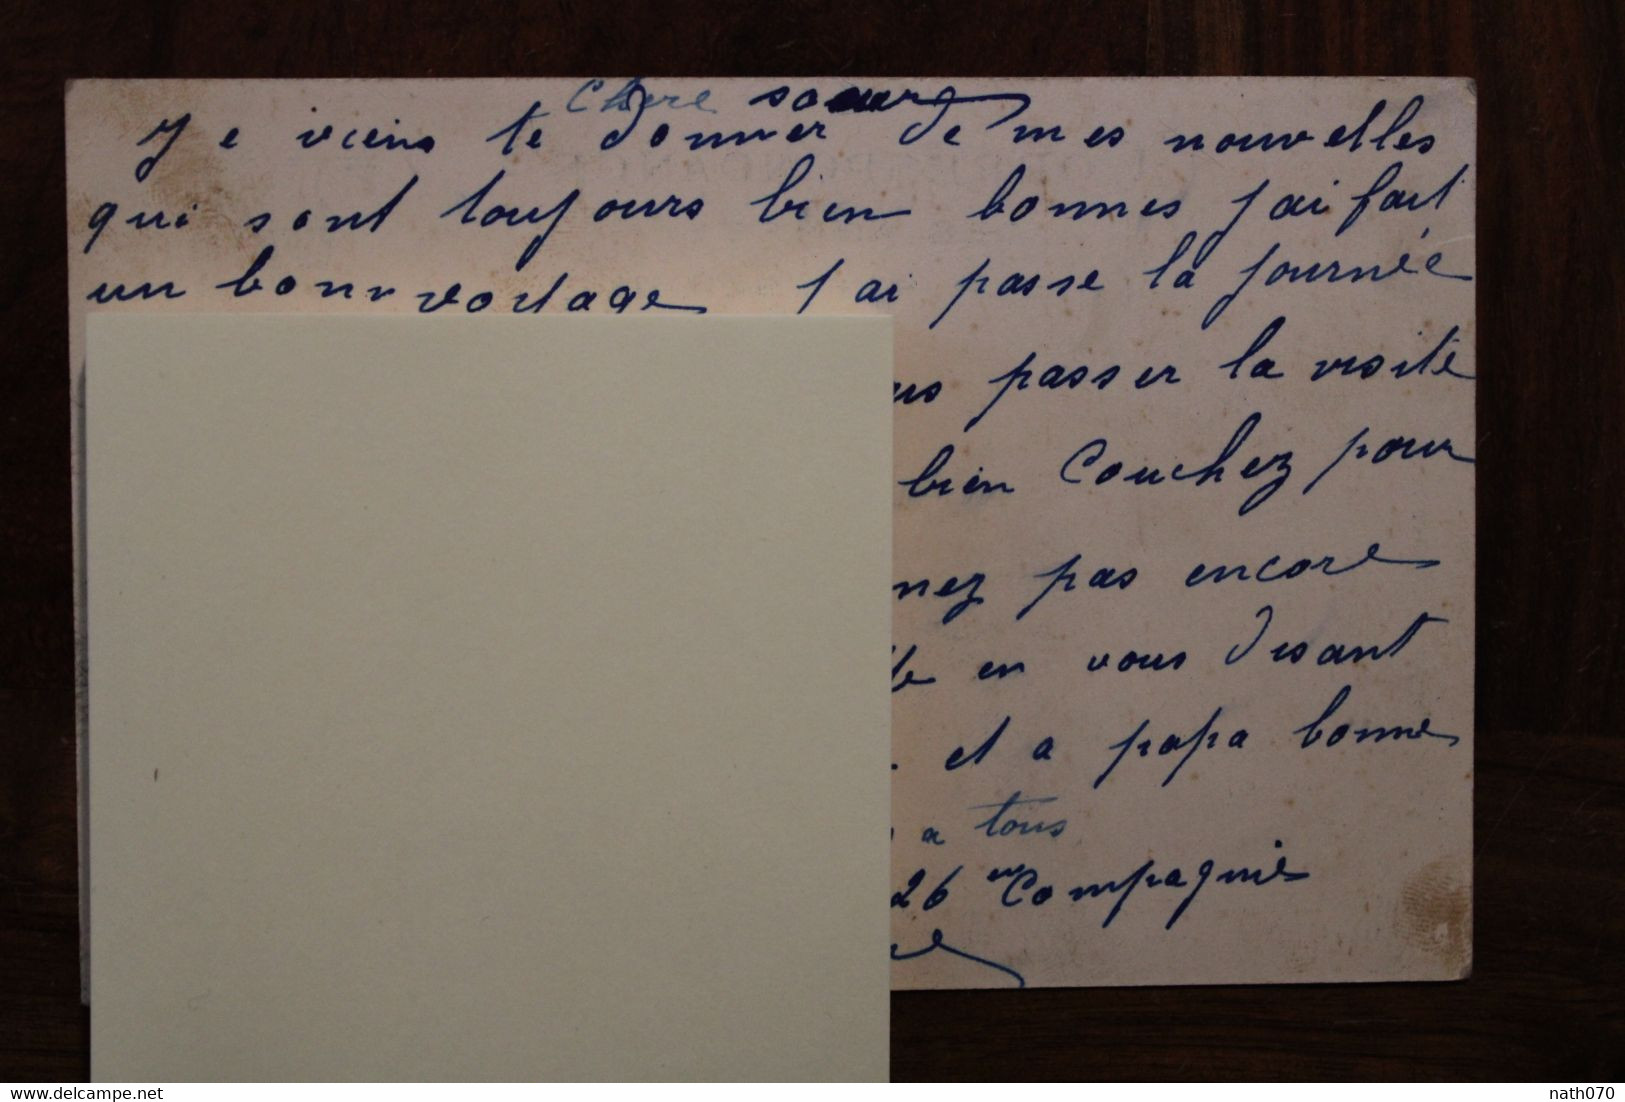 Chere soeur
Je viens te donner de mes nouvelles
qui sont toujours bien bonnes j ai fait
un bon voyage j ai passe la journée
passer la visite
bien Couchez pour
nez pas encore
en vous disant
et a papa bonne
a tous
26 em Compagnie
delcampe.net
nath070